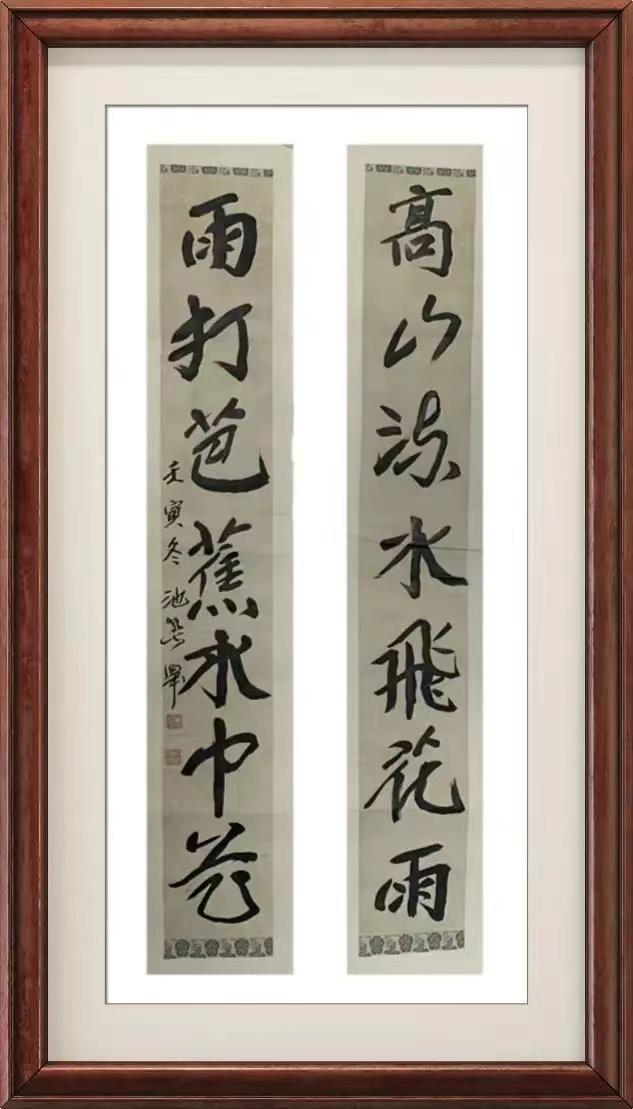 高山流水飛花雨
雨打芭蕉水中花
壬寅冬池